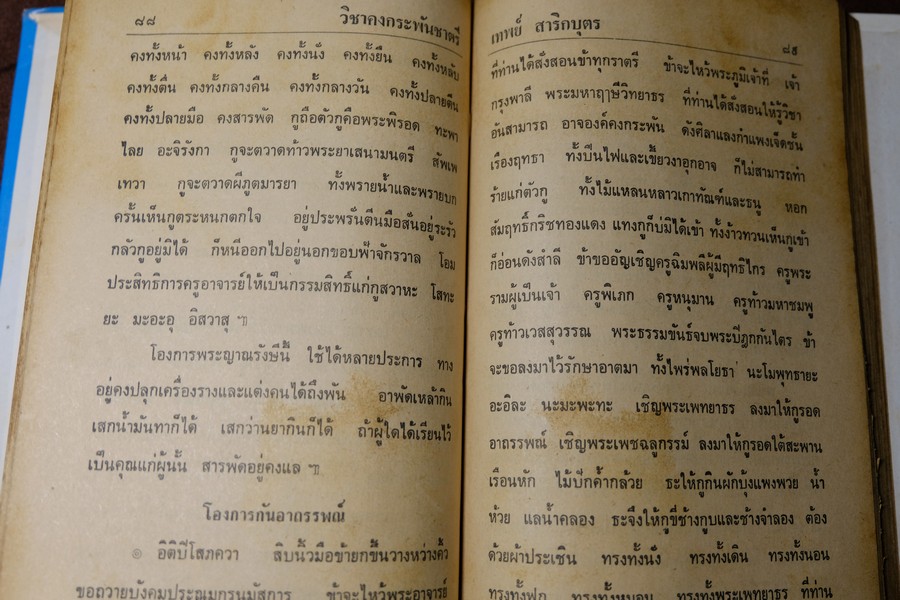 ๘๘ วิชาคงกระพันชาตรี
คงทั้งหน้า คงทั้งหลัง คงทั้งนั่ง คงทั้งยืน คงทั้งหลับ
คงทั้งตื่น คงทั้งกลางคืน คงทั้งกลางวัน คงทั้งปลายตีน
คงทั้งปลายมือ คงสารพัด กูถือตัวกูคือพระพิรอด ทะพา
ไลย อะจิรังกา กูจะตวาดท้าวพระยาเสนามนตรี สัพเพ
เทวา กูจะตวาดผีภูตมารยา ทั้งพรายน้ำและพรายบก
ครั้นเห็นกูตระหนกตกใจ อยู่ประพรั่นตีนมือสั่นอยู่ระรัว
กลัวกูอยู่มิได้ ก็หนีออกไปอยู่นอกขอบฟ้าจักรวาล โอม
ประสิทธิการครูอาจารย์ให้เป็นกรรมสิทธิ์แก่กูสวาหะ โสทะ
ยะ มะอะอุ อิสวาสุ ฯ
โองการพระญาณรังษีนี้ ใช้ได้หลายประการ ทาง
อยู่คงปลุกเครื่องรางและแต่งคนได้ถึงพัน อาพัดเหล้ากิน
เสกน้ำมันทาก็ได้ เสกว่านยากินก็ได้ ถ้าผู้ใดได้เรียนไว้
เป็นคุณแก่ผู้นั้น สารพัดอยู่คงแล ฯ
โองการกันอาถรรพณ์
๏ อิติปิโสภควา สิบนิ้วมือข้ายกขึ้นวางหว่างคิ้ว
ขอถวายบังคมประณมกรนมัสการ ข้าจะไหว้พระอาจารย์
เทพย์ สาริกบุตร ๘๙
ที่ท่านได้สั่งสอนข้าทุกราตรี ข้าจะไหว้พระภูมิเจ้าที่ เจ้า
กรุงพาลี พระมหาฤๅษีวิทยาธร ที่ท่านได้สั่งสอนให้รู้วิชา
อันสามารถ อาจองค์คงกระพัน ดังศิลาแลงกำแพงเจ็ดชั้น
เรืองฤทธา ทั้งปืนไฟและเขี้ยวงาอุกอาจ ก็ไม่สามารถทำ
ร้ายแก่ตัวกู ทั้งไม้แหลนหลาวเกาทัณฑ์และธนู หอก
สัมฤทธิ์กริชทองแดง แทงกูก็บ่มิได้เข้า ทั้งง้าวทวนเห็นกูเข้า
ก็อ่อนดังสำลี ข้าขออัญเชิญครูฉิมพลีผู้มีฤทธิไกร ครูพระ
รามผู้เป็นเจ้า ครูพิเภก ครูหนุมาน ครูท้าวมหาชมพู
ครูท้าวเวสสุวรรณ พระธรรมขันธ์จบพระปีฎกกันไตร ข้า
จะขอลงมาไว้รักษาอาตมา ทั้งไพร่พลโยธา นะโมพุทธายะ
อะอิละ นะมะพะทะ เชิญพระเพทยาธร ลงมาให้กูรอด
อาถรรพณ์ เชิญพระเพชฉลูกรรม์ ลงมาให้กูรอดใต้สะพาน
เรือนหัก ไม้ปักค้ำกล้วย ธะให้กูกินผักบุ้งแพงพวย น้ำ
ห้วย แลน้ำคลอง ธะจึงให้กูขี่ช้างกูบและช้างจำลอง ต้อง
ด้วยผ้าประเชิน ทรงทั้งนั่ง ทรงทั้งเดิน ทรงทั้งนอน
ทรงทั้งฟูก ทรงทั้งหมอน ทรงทั้งพระเพทยาธร ที่ท่าน